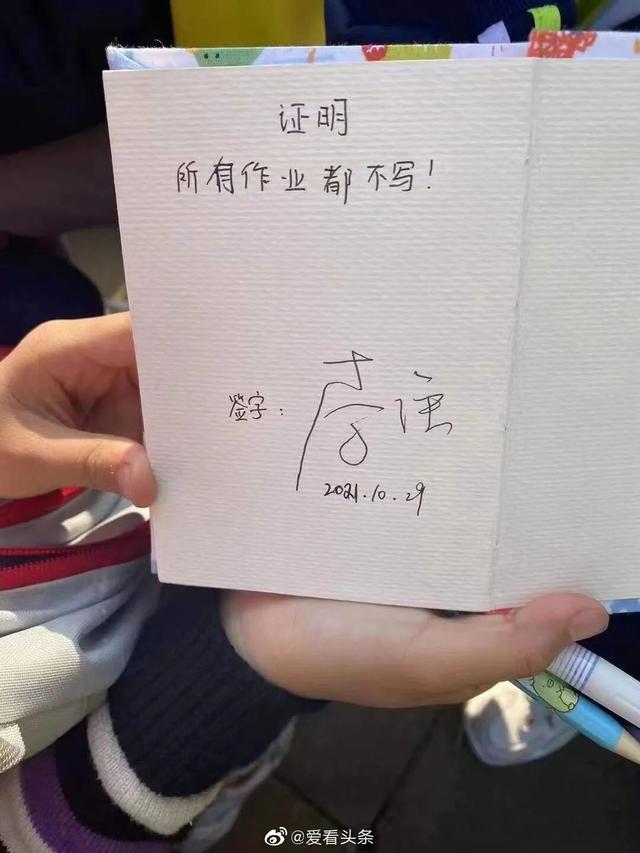 证明
所有作业都不写！
签字：
2021.10.29
@爱看头条